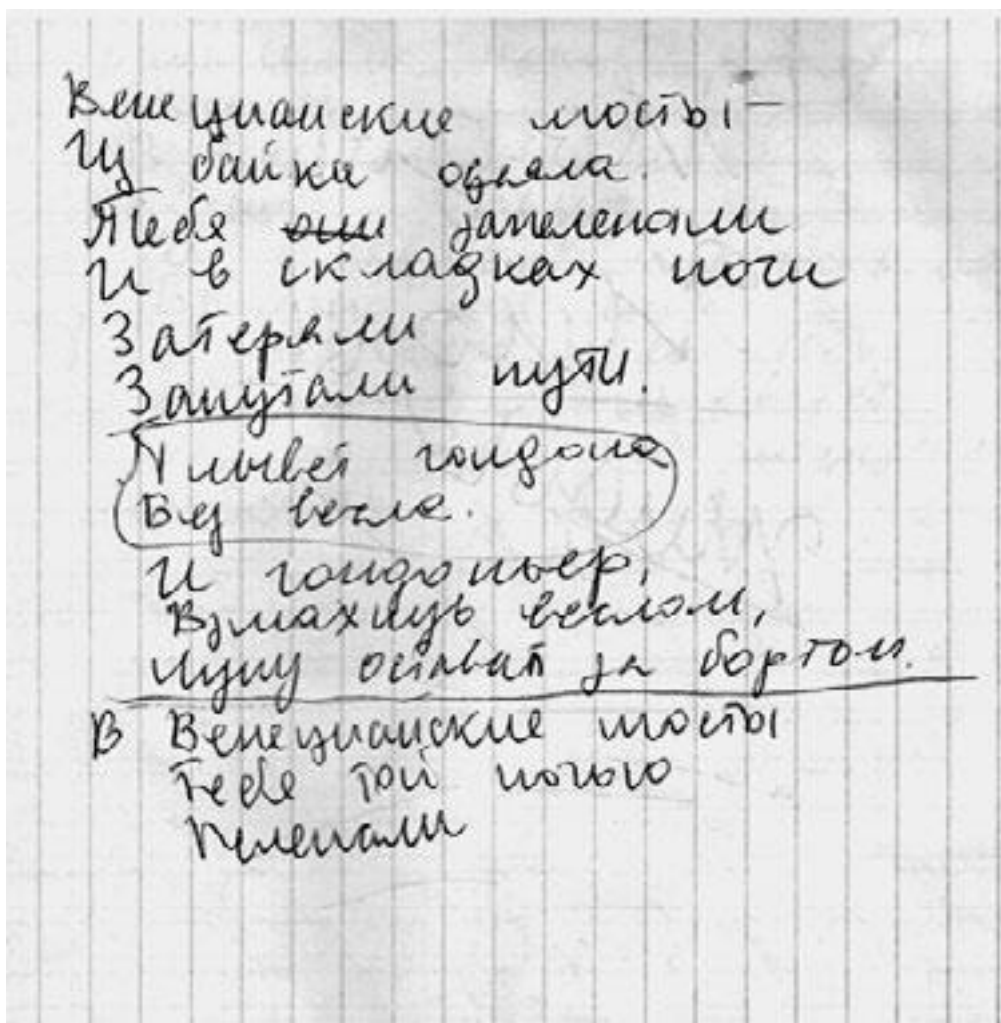 Венецианские мосты –
Из байки одеяла.
Тебя они запеленали
И в складках ночи
Затеряли
Запутали пути.
Плывет гондола
Без весла.
И гондольер,
Взмахнув веслом,
Луну оставил за бортом.
В Венецианские мосты
Тебя той ночью
Пеленали